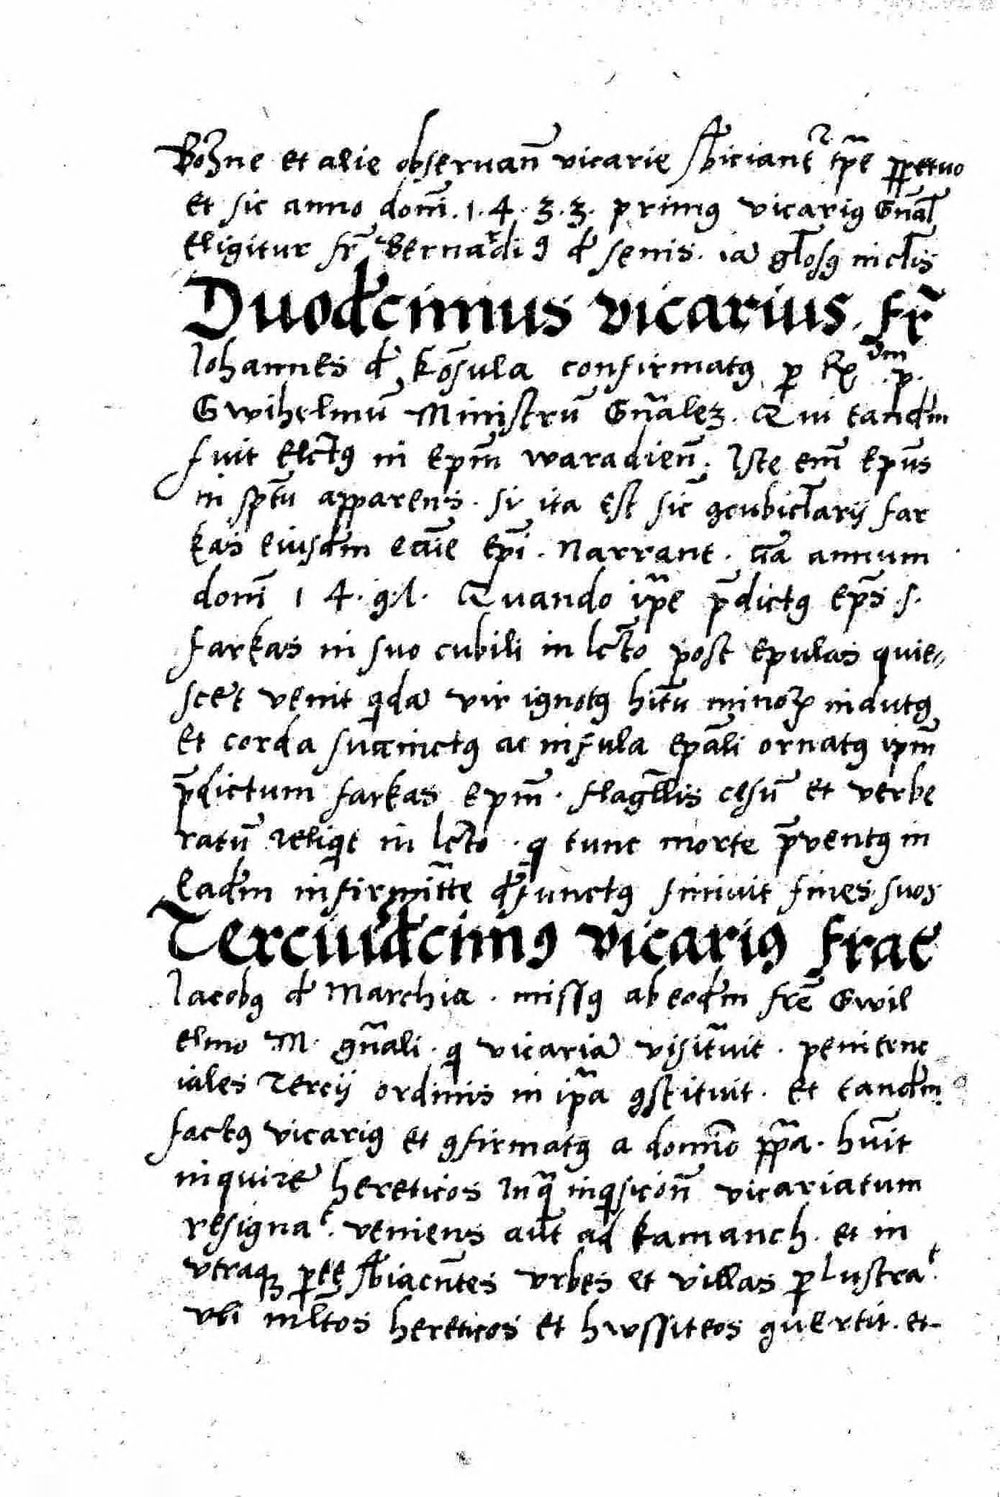 Bozne et alie obseruan̄ vicarie sb̄iciant᷑ tp̄e ꝑpetuo
et sic anno domī. 1. 4. 3. 3. primꝰ vicariꝰ Gn̄al̄
eligitur fr̄ Bernardiꝰ d̄ senis. ia gl̄osꝰ in cl̄is
Duod̄cimus vicarius. fr̄
Iohannes d̄ kōsula confirmatꝰ ꝑ Rᵈᵐ. p.
Gwihelmū Ministrū Gn̄alez. Qui tand̄m
fuit elc̄tꝰ in ep̄m waradien̄. Iste em̄ ep̄us
in sp̄tu apparens. si ita est sic̄ ꝯcubicl̄arij far
kas eiusd̄m ecc̄ie ep̄i. Narrant. c̄a annum
domī 1 4. ꝯ. l. Quando ip̄e p̄dictꝰ ep̄s. s.
farkas in suo cubili in lc̄to post epulas quie⸗
scēt venit qida vir ignotꝰ hītu minoꝝ indutꝰ
et corda succinctꝰ ac infula ep̄ali ornatꝰ ip̄m
p̄dictum farkas ep̄m. flagel̄lis cesū et verbe
ratū reliqit in lc̄to. q tunc morte p̄ventꝰ in
ead̄m infirmit̄te d̄functꝰ finiuit fines suos
Terciusd̄cimꝰ vicariꝰ frat᷑
Iacobꝰ d̄ Marchia. missꝰ ab eod̄m fr̄e Gwil
elmo M. gn̄ali. q vicaria visitāuit. penitenc
iales Tercij ordinis in ip̄a ꝯstituit. et tand̄m
factꝰ vicariꝰ et ꝯfirmatꝰ a domīo pp̄a. hūit
inquire᷑ hereticos In q̄ inqisicōn̄ vicariatum
resignaᵗ. veniens aūt ad kamanch. et in
vtraqꝫ ꝑte sb̄iacn̄tes vrbes et villas ꝑlustraᵗ.
vbi ml̄tos hereticos et hwssiteos ꝯuertit. et